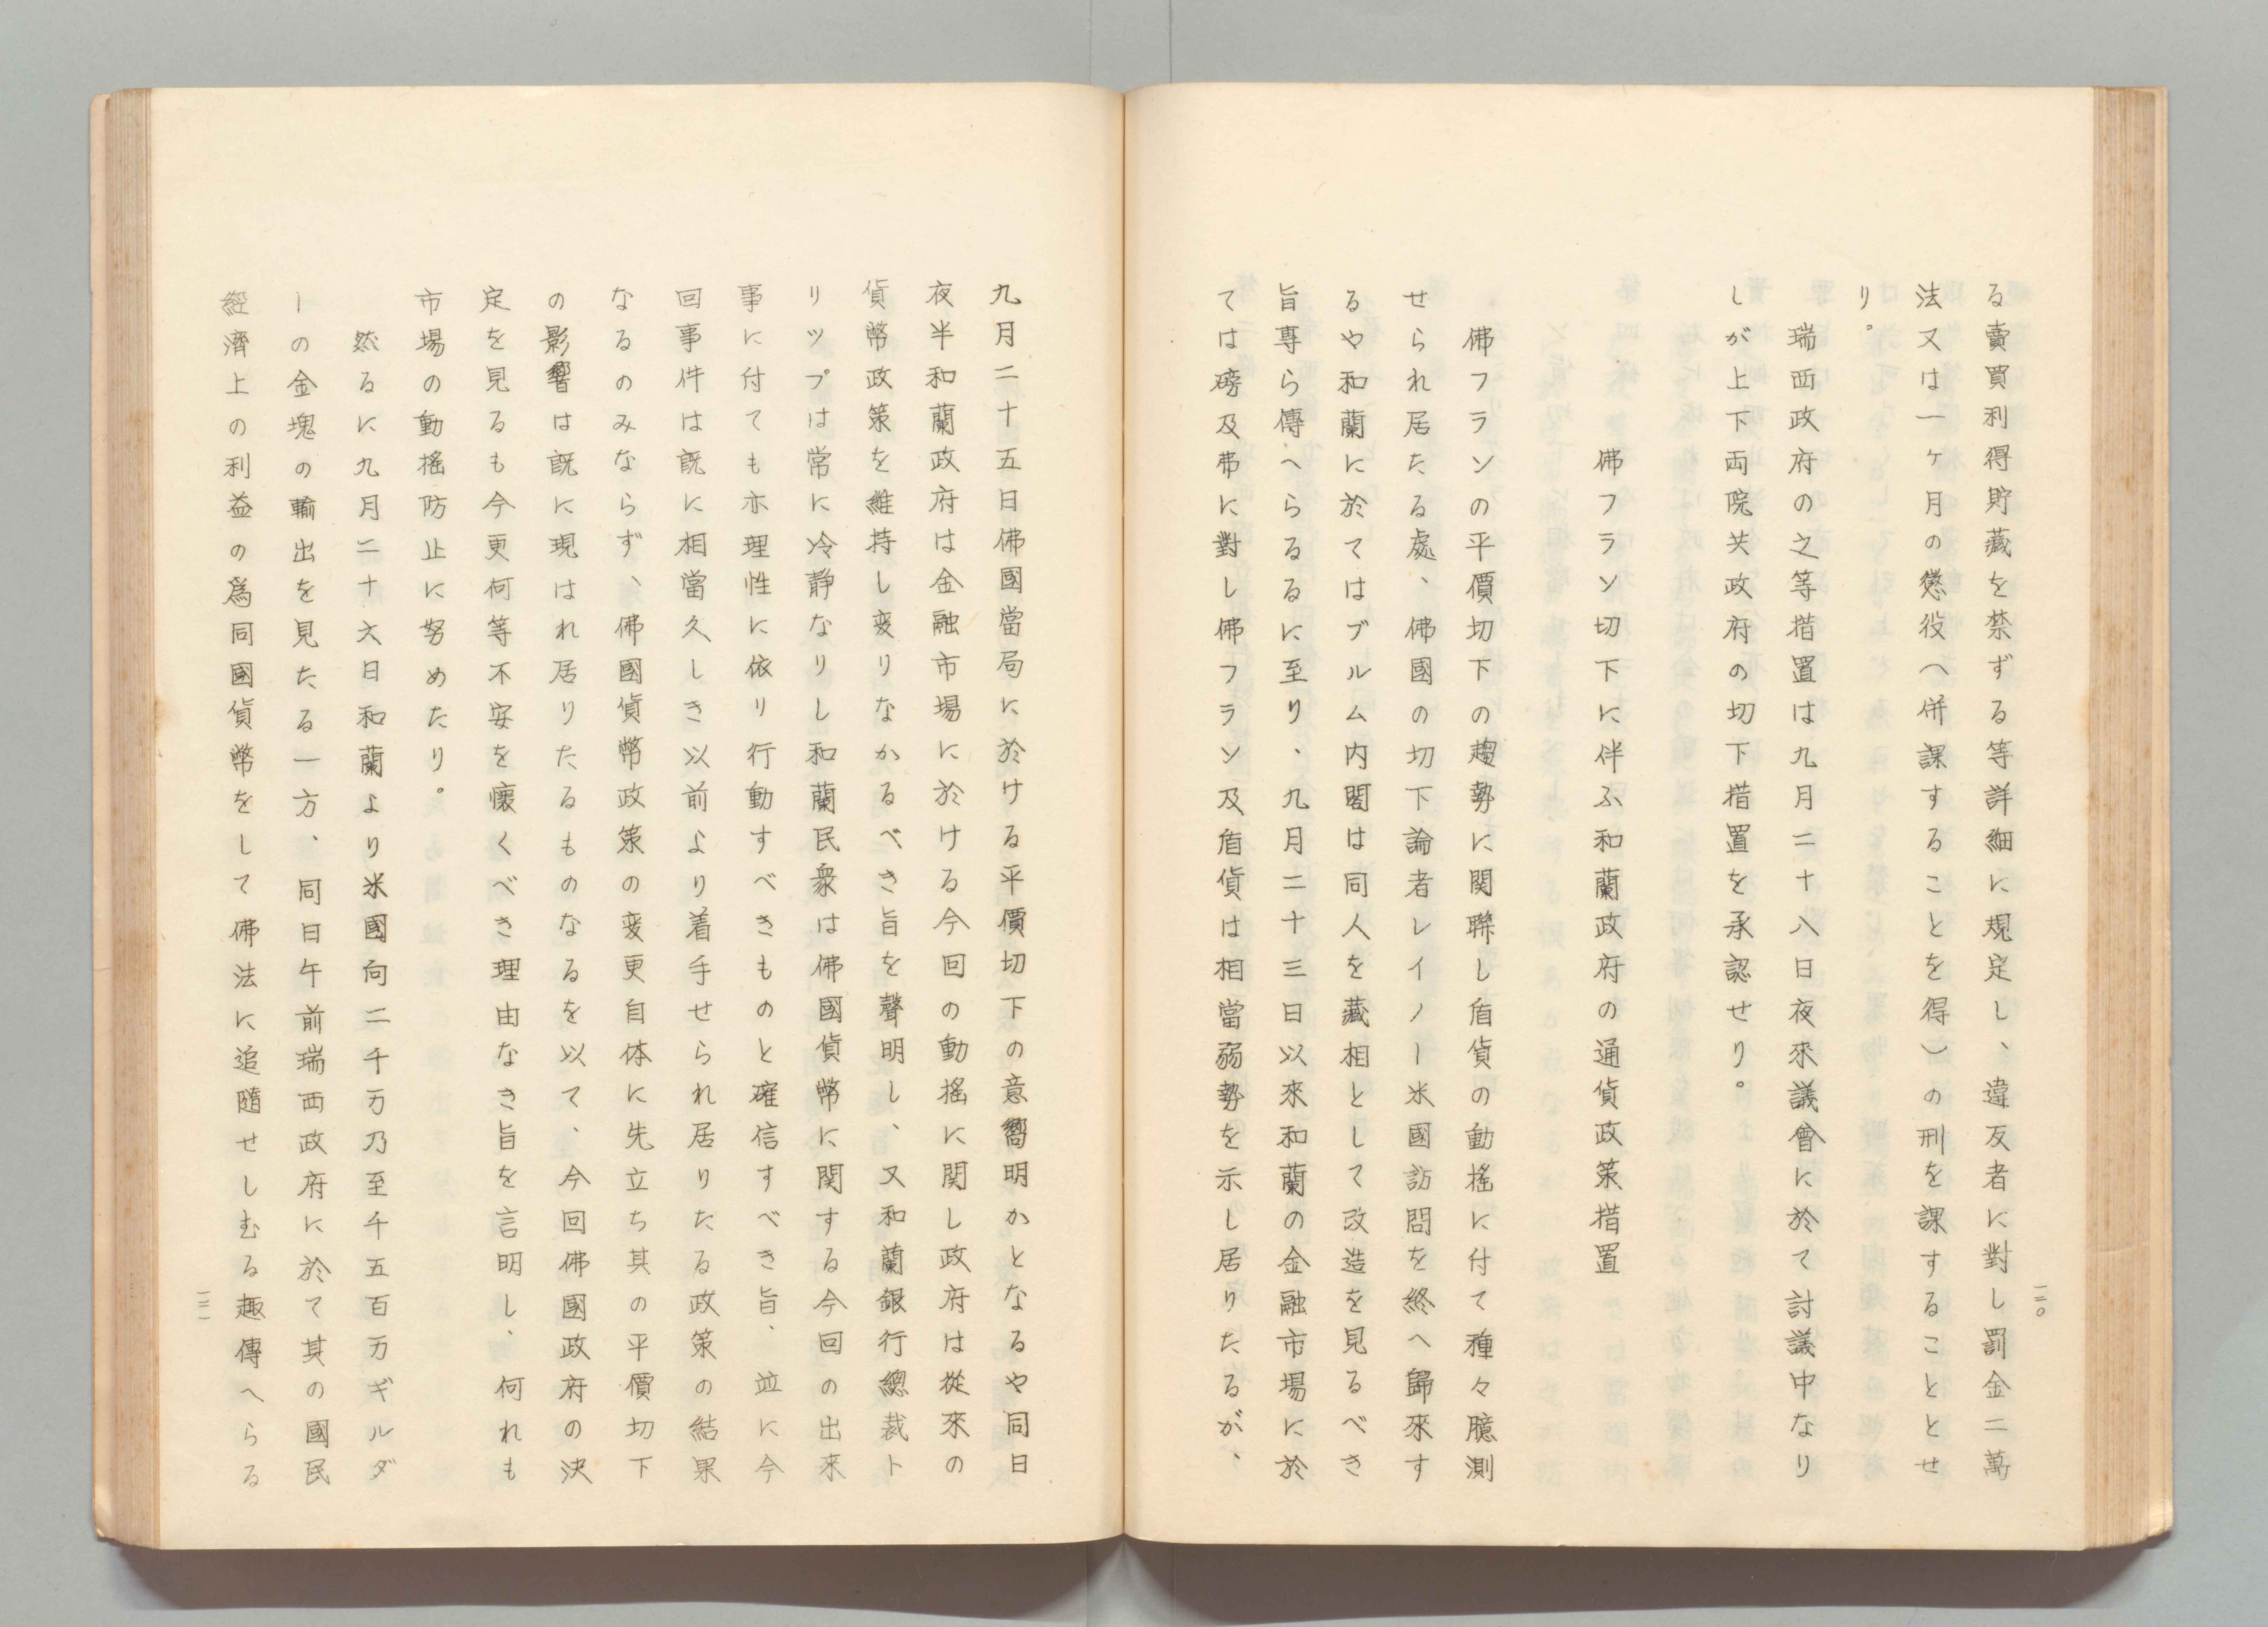 る賣買利得貯藏を禁ずる等詳細に規定し、違反者に對し罰金二萬
法又は一ヶ月の懲役へ併課することを得)の刑を課することとせ
り。
瑞西政府の之等措置は九月二十八日夜來議會に於て討議中なり
しが上下両院共政府の切下措置を承認せり。
佛フラン切下に伴ふ和蘭政府の通貨政策措置
佛フランの平價切下の趨勢に関聯し盾貨の動搖に付て種々臆測
せられ居たる處、佛國の切下論者レイノー米國訪問を終へ歸來す
るや和蘭に於てはブルム内閣は同人を藏相として改造を見るべき
旨専ら傳へらるるに至り、九月二十三日以來和蘭の金融市場に於
ては磅及弗に對し佛フラン及盾貨は相當弱勢を示し居りたるが、
一二〇
九月二十五日佛國當局に於ける平價切下の意嚮明かとなるや同日
夜半和蘭政府は金融市場に於ける今回の動搖に関し政府は從來の
貨幣政策を維持し変りなかるべき旨を聲明し、又和蘭銀行總裁ト
リップは常に冷静なりし和蘭民衆は佛國貨幣に関する今回の出來
事に付ても亦理性に依り行動すべきものと確信すべき旨、並に今
回事件は既に相當久しき以前より着手せられ居りたる政策の結果
なるのみならず、佛國貨幣政策の変更自体に先立ち其の平價切下
の影響は既に現はれ居りたるものなるを以て、今回佛國政府の決
定を見るも今更何等不安を懷くべき理由なき旨を言明し、何れも
市場の動搖防止に努めたり。
然るに九月二十六日和蘭より米國向二千万乃至千五百万ギルダ
ーの金塊の輸出を見たる一方、同日午前瑞西政府に於て其の國民
經濟上の利益の爲同國貨幣をして佛法に追隨せしむる趣傳へらる
一二一